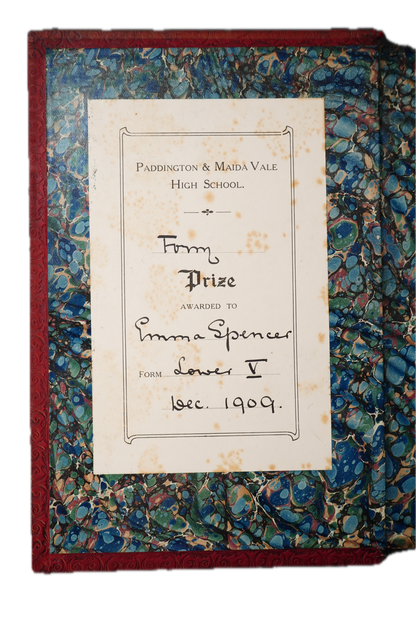 PADDINGTON & MAIDA VALE
HIGH SCHOOL.
Form
Prize
AWARDED TO
Emma Spencer
FORM Lower V
Dec. 1909.